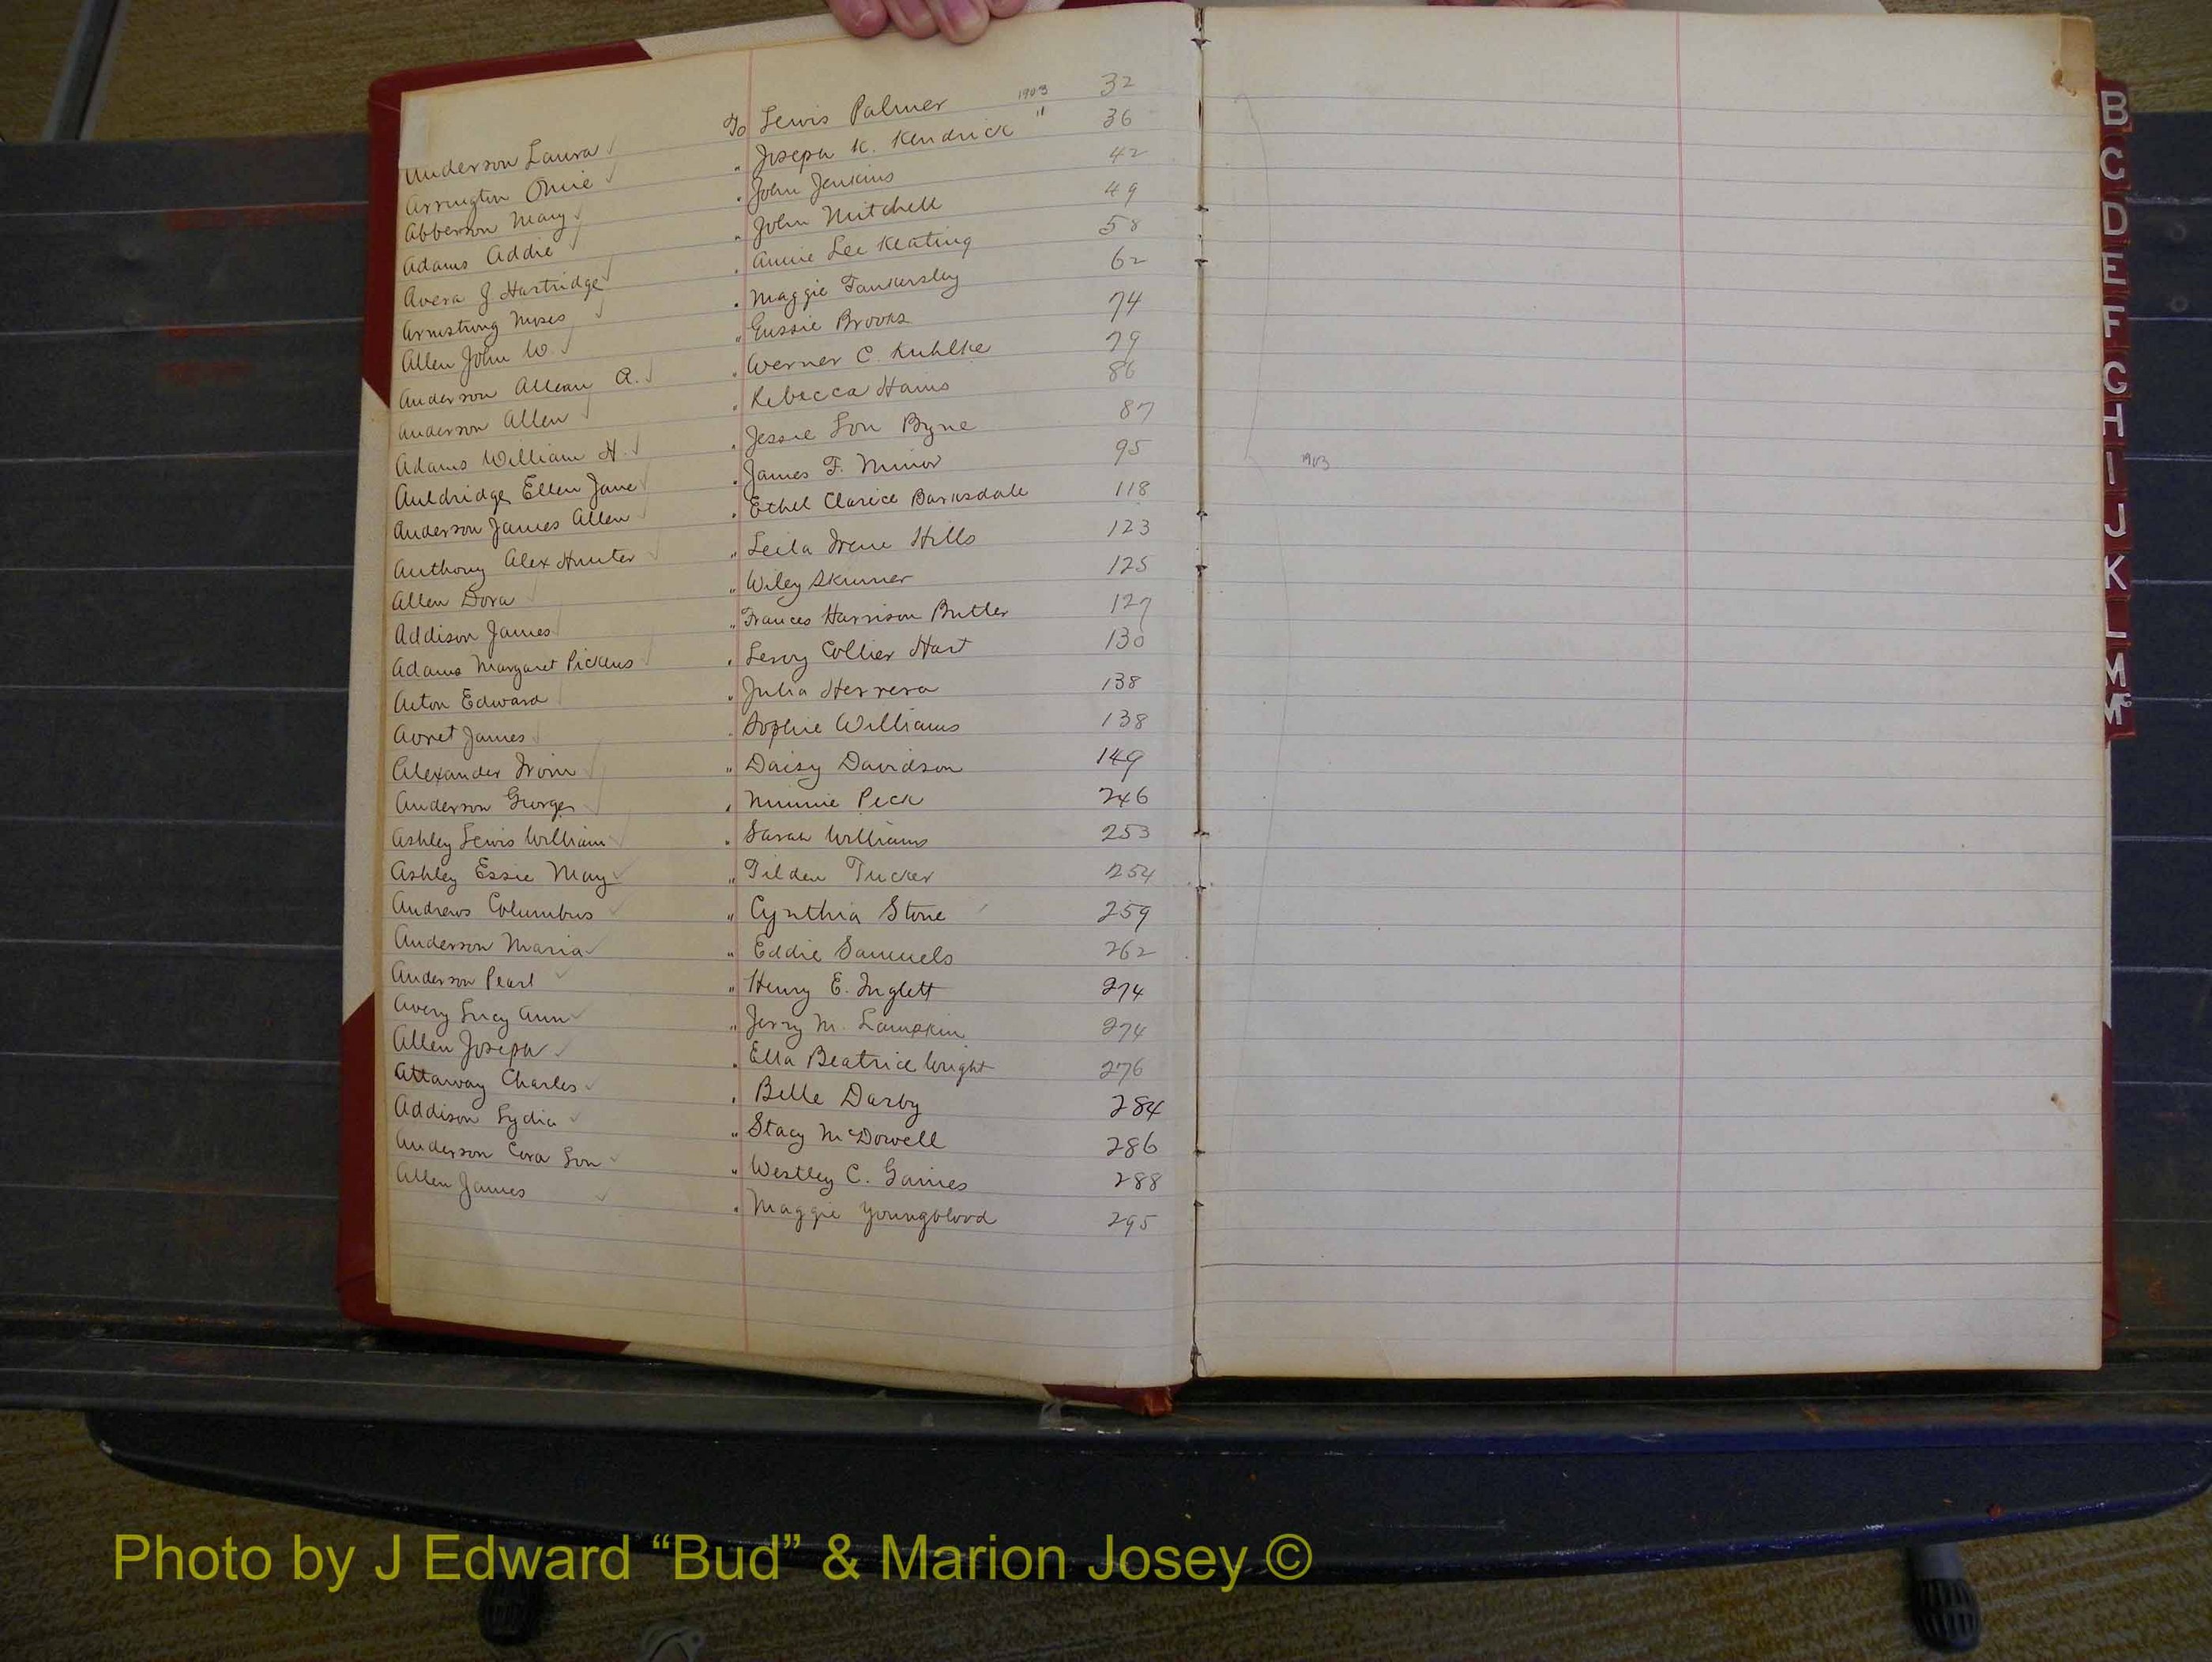 Anderson Laura ✓ To Lewis Palmer 1903 32
Arrington Omie ✓ " Joseph K. Kendrick " 36
Abberson Mary ✓ " John Jenkins 42
Adams Addie ✓ " John Mitchell 49
Avera J Hartridge ✓ " Annie Lee Keating 58
Armstrong Moses ✓ " Maggie Tankersley 62
Allen John W. ✓ " Gussie Brooks 74
Anderson Allean A. ✓ " Werner C. Kuhlke 79
Anderson Allen ✓ " Rebecca Hains 86
Adams William H. ✓ " Jessie Lou Byne 87
Auldridge Ellen Jane ✓ " James F. Minor 95
Anderson James Allen ✓ " Ethel Clarice Barksdale 118
Anthony Alex Hunter ✓ " Leila Irene Hills 123
Allen Dora ✓ " Wiley Skinner 125
Addison James ✓ " Frances Harrison Butler 127
Adams Margaret Pickens ✓ " Leroy Collier Hart 130
Acton Edward ✓ " Julia Herrera 138
Avret James ✓ " Sophie Williams 138
Alexander Irvin ✓ " Daisy Davidson 149
Anderson George ✓ " Minnie Peck 246
Ashley Lewis William ✓ " Sarah Williams 253
Ashley Essie May ✓ " Tilden Tucker 254
Andrews Columbus ✓ " Cynthia Stone 259
Anderson Maria ✓ " Eddie Samuels 262
Anderson Pearl ✓ " Henry E. Inglett 274
Avery Lucy Ann ✓ " Jerry M. Lampkin 274
Allen Joseph ✓ " Ella Beatrice Wright 276
Attaway Charles ✓ " Belle Darby 284
Addison Lydia ✓ " Stacy McDowell 286
Anderson Cora Lou ✓ " Westley C. Gaines 288
Allen James ✓ " Maggie Youngblood 295
1903
B
C
D
E
F
G
H
I
J
K
L
M
Mc
Photo by J Edward “Bud” & Marion Josey ©